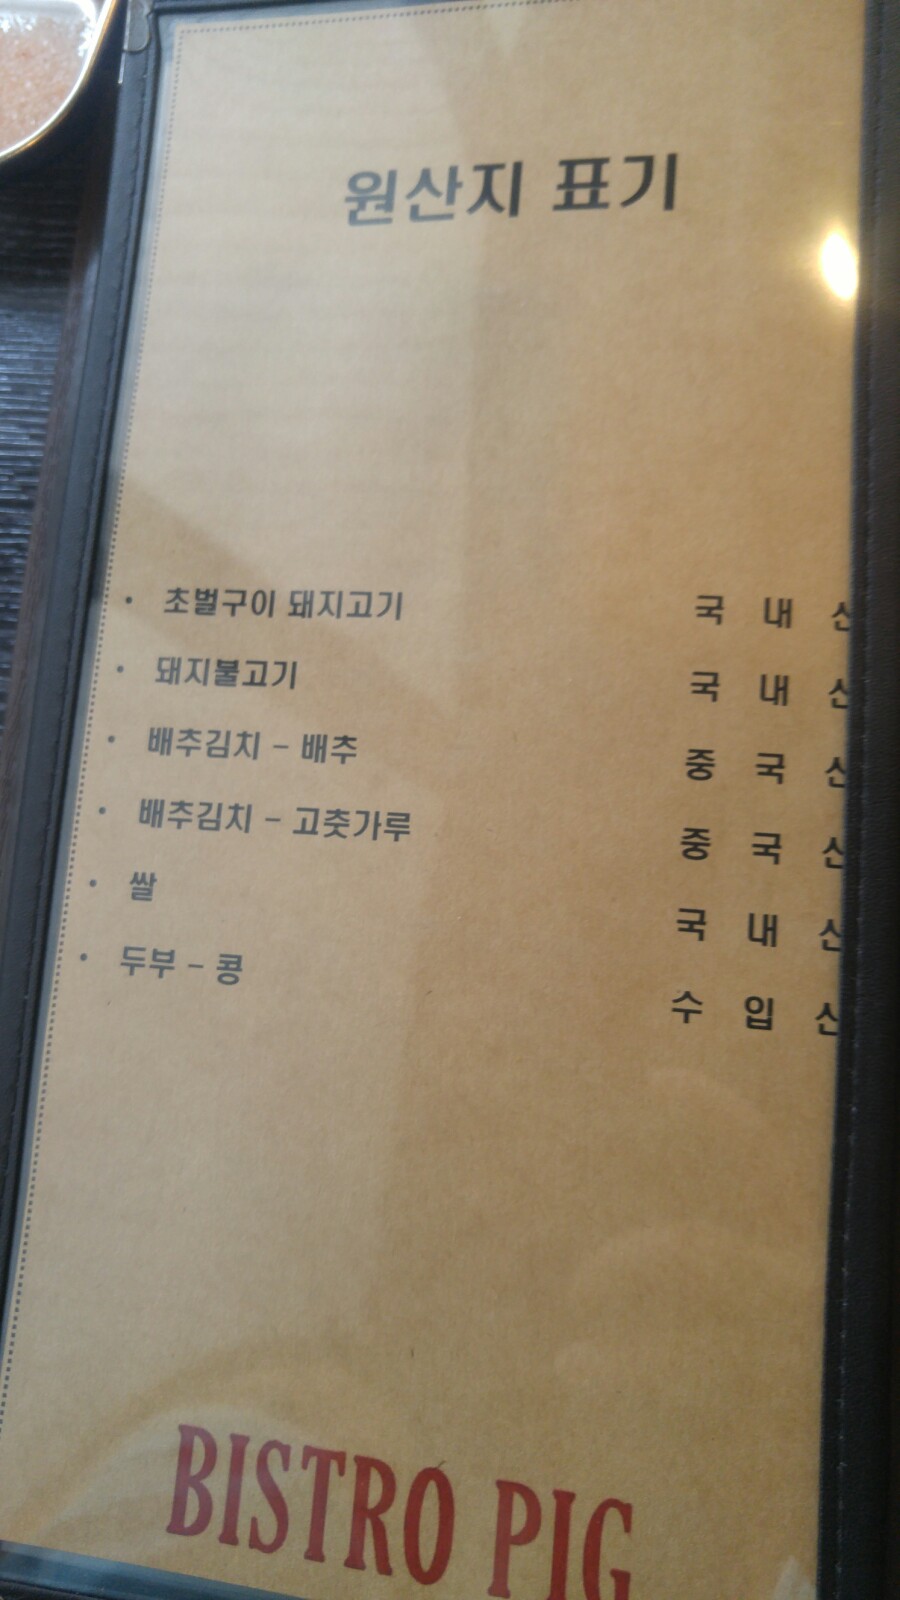 원산지 표기
• 초벌구이 돼지고기 국 내 산
• 돼지불고기 국 내 산
• 배추김치 - 배추 중 국 산
• 배추김치 - 고춧가루 중 국 산
• 쌀 국 내 산
• 두부 - 콩 수 입 산
BISTRO PIG